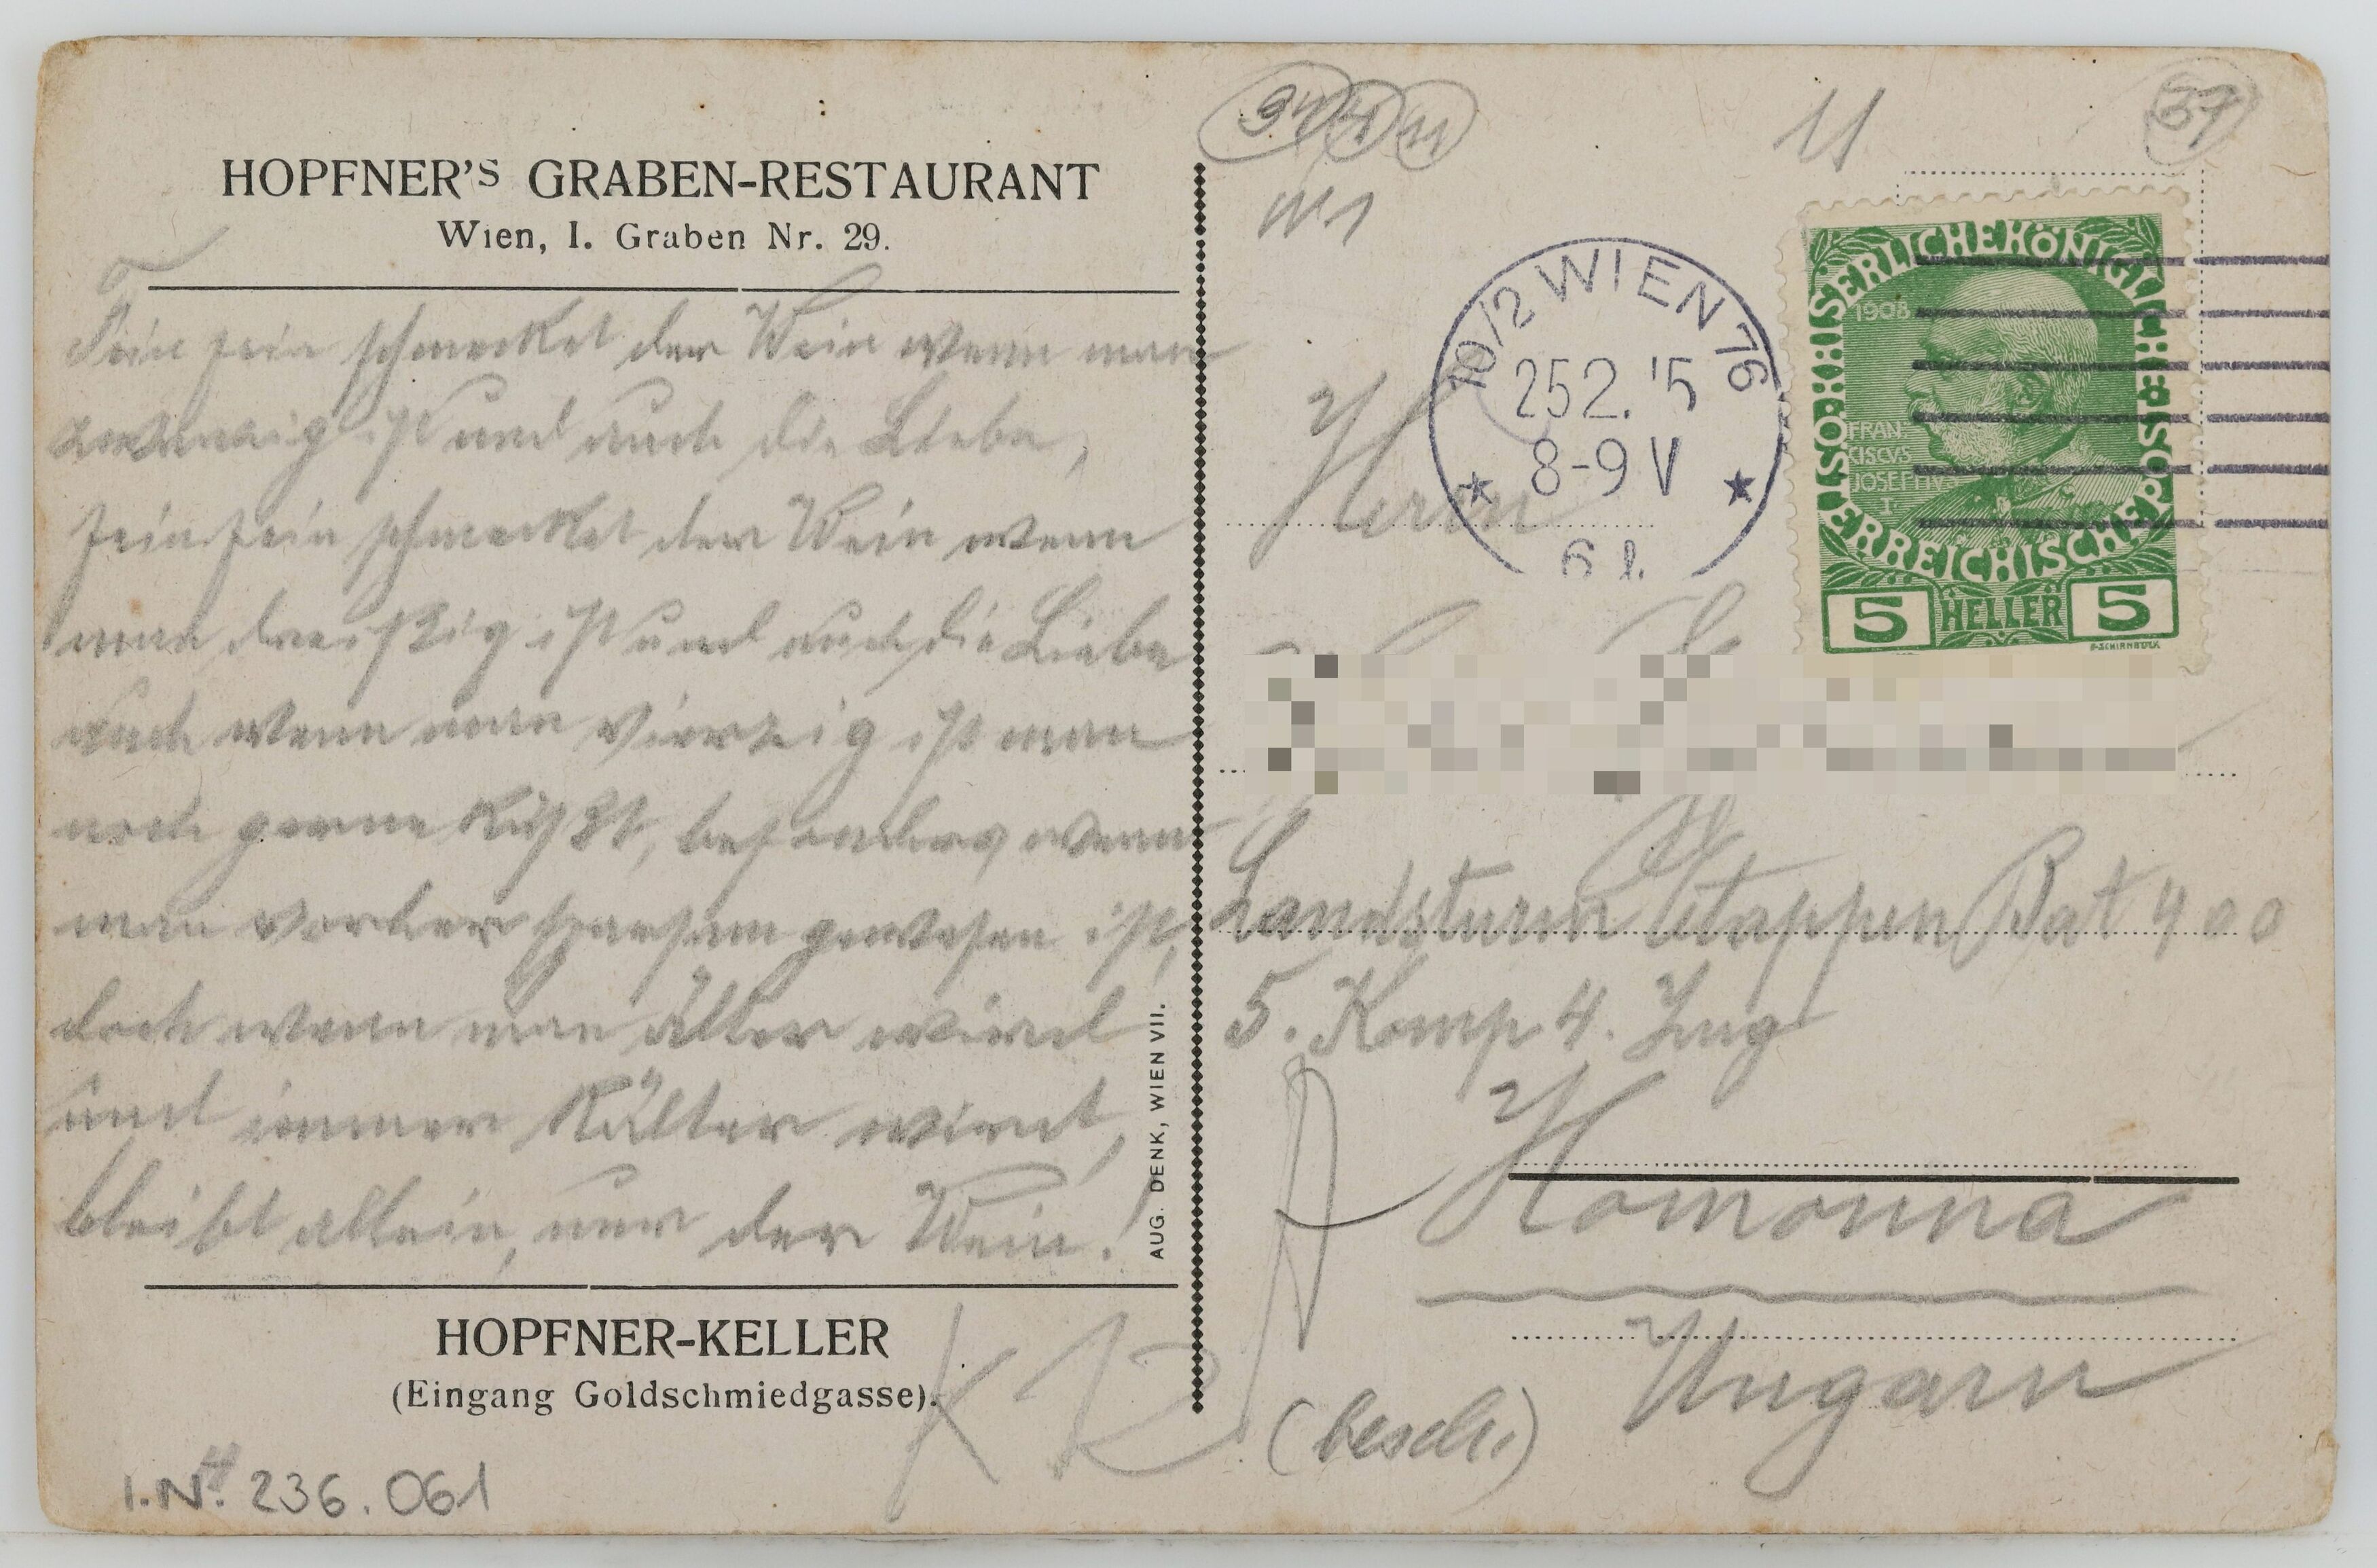 HOPFNER'S GRABEN-RESTAURANT
Wien, I. Graben Nr. 29.
Fein fein schmecket der Wein wenn man
zwanzig ist und auch die Liebe,
fein fein schmecket der Wein wenn
man dreißig ist und auch die Liebe
auch wenn man vierzig ist man
noch gerne küßt, besonders wenn
man vorher sparsam gewesen ist,
doch wenn man älter wird
und immer kälter wird,
bleibt allein, nur der Wein!
HOPFNER-KELLER
(Eingang Goldschmiedgasse).
I.N. 236.061
AUG. DENK, WIEN VII.
11
37
10/2 WIEN 76
252.'5
8-9 V
KAISERLICHE KÖNIGLICHE ÖSTERREICHISCHE POST
1908
FRAN-
CISCVS
JOSEPHVS
I
5 HELLER 5
Herrn
Landsturm Etappen Bat 400
5. Komp 4. Zug
Homonna
Ungarn
(besch.)